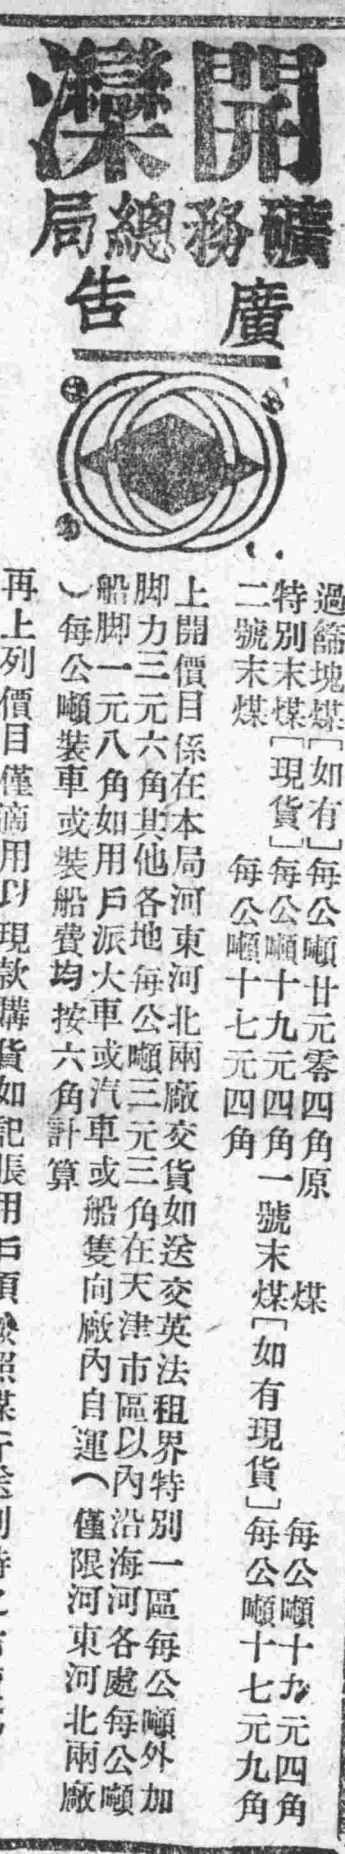 開灤
礦務總局
廣告
過篩塊煤[如有]每公噸廿元零四角原　煤　每公噸十九元四角
特別末煤[現貨]每公噸十九元四角一號末煤[如有現貨]每公噸十七元九角
二號末煤　每公噸十七元四角
上開價目係在本局河東河北兩廠交貨如送交英法租界特別一區每公噸外加
脚力三元六角其他各地每公噸三元三角在天津市區以內沿海河各處每公噸
船脚一元八角如用戶派火車或汽車或船隻向廠內自運(僅限河東河北兩廠
)每公噸裝車或裝船費均按六角計算
再上列價目僅適用以現款購貨如記賬用戶須